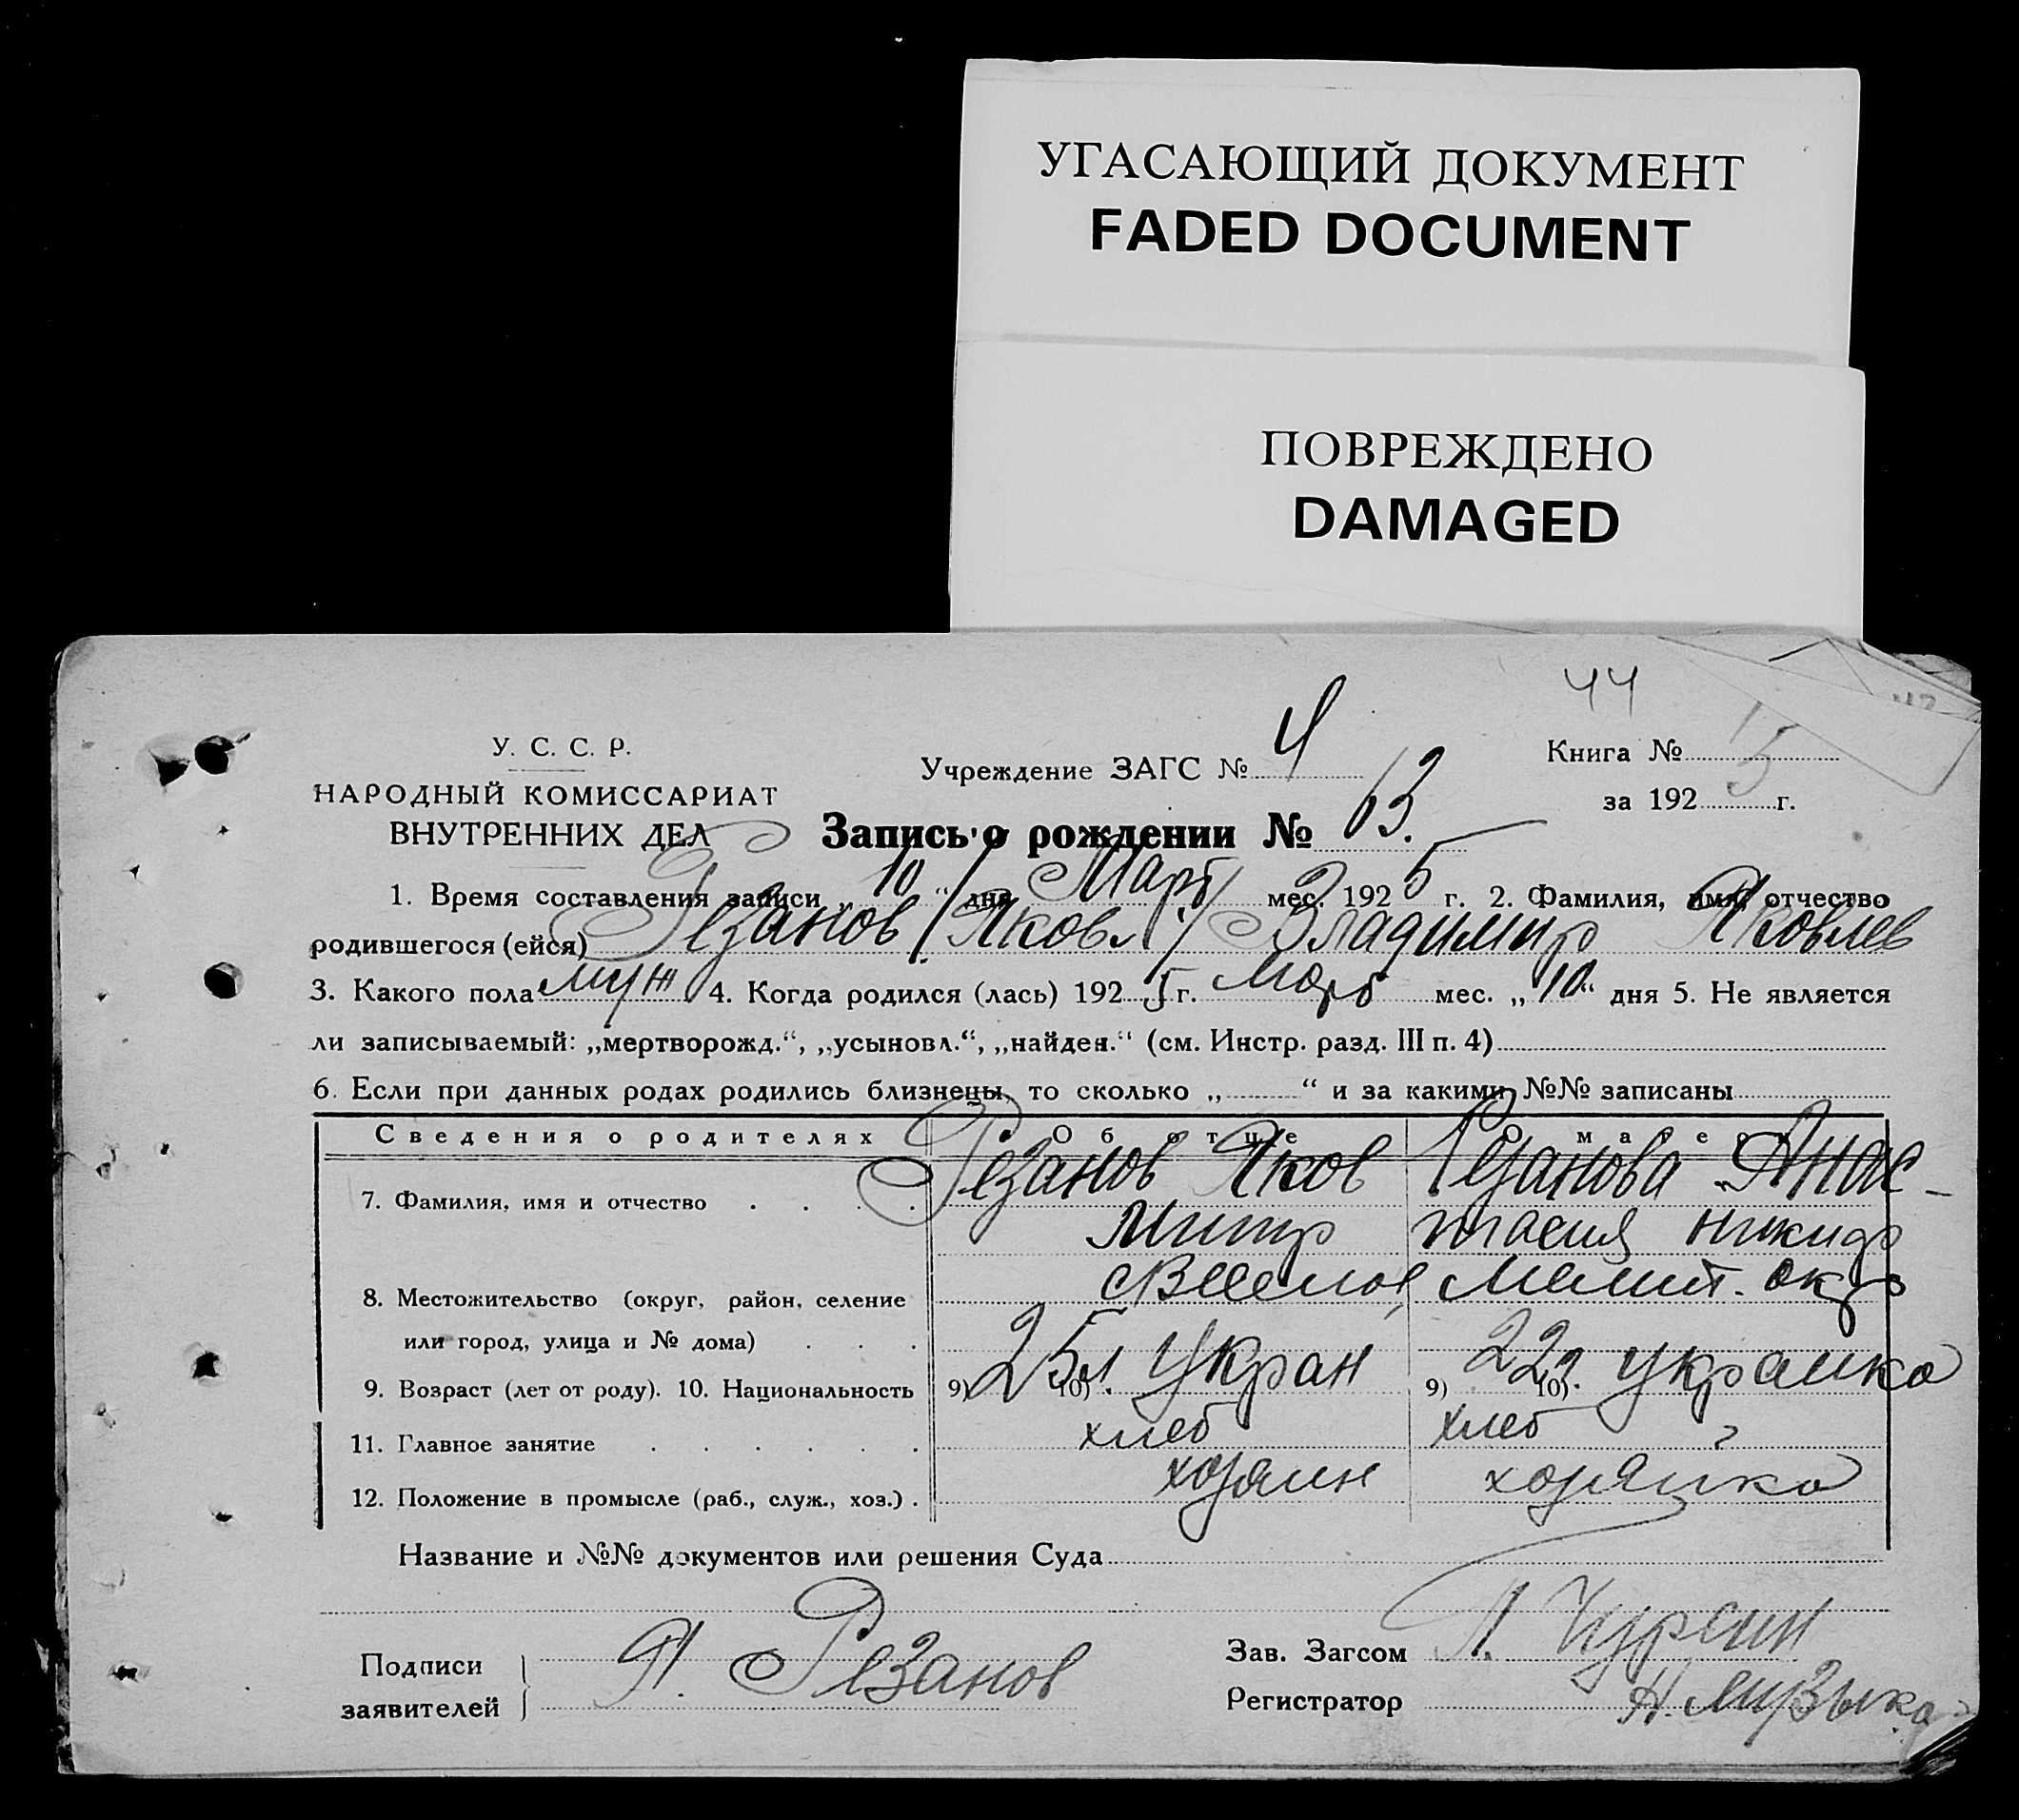 УГАСАЮЩИЙ ДОКУМЕНТ
FADED DOCUMENT
ПОВРЕЖДЕНО
DAMAGED
44
У. С. С. Р.
НАРОДНЫЙ КОМИССАРИАТ
ВНУТРЕННИХ ДЕЛ
Учреждение ЗАГС № 4
Книга №
за 192 5 г.
Запись о рождении № 63.
1. Время составления записи „ 10 “ дня Март мес. 192 5 г. 2. Фамилия, имя, отчество
родившегося (ейся) Резанов (Яковл) Владимир Яковлев
3. Какого пола муж 4. Когда родился (лась) 192 5 г. март мес. „ 10 “ дня 5. Не является
ли записываемый: „мертворожд.“, „усыновл.“, „найден.“ (см. Инстр. разд. III п. 4)
6. Если при данных родах родились близнецы, то сколько „ “ и за какими №№ записаны
Сведения о родителях Об отце О матери
7. Фамилия, имя и отчество Резанов Яков Резанова Анас-
Митр тасия Никиф
8. Местожительство (округ, район, селение Веселое Мелит. окр
или город, улица и № дома)
9. Возраст (лет от роду). 10. Национальность 9) 25 л. 10) Укран 9) 22 л. 10) Украинка
11. Главное занятие хлеб хлеб
12. Положение в промысле (раб., служ., хоз.) . хозяин хозяйка
Название и №№ документов или решения Суда
Подписи
заявителей
Я. Резанов
Зав. Загсом Л. Чурсин
Регистратор Н. Музыка